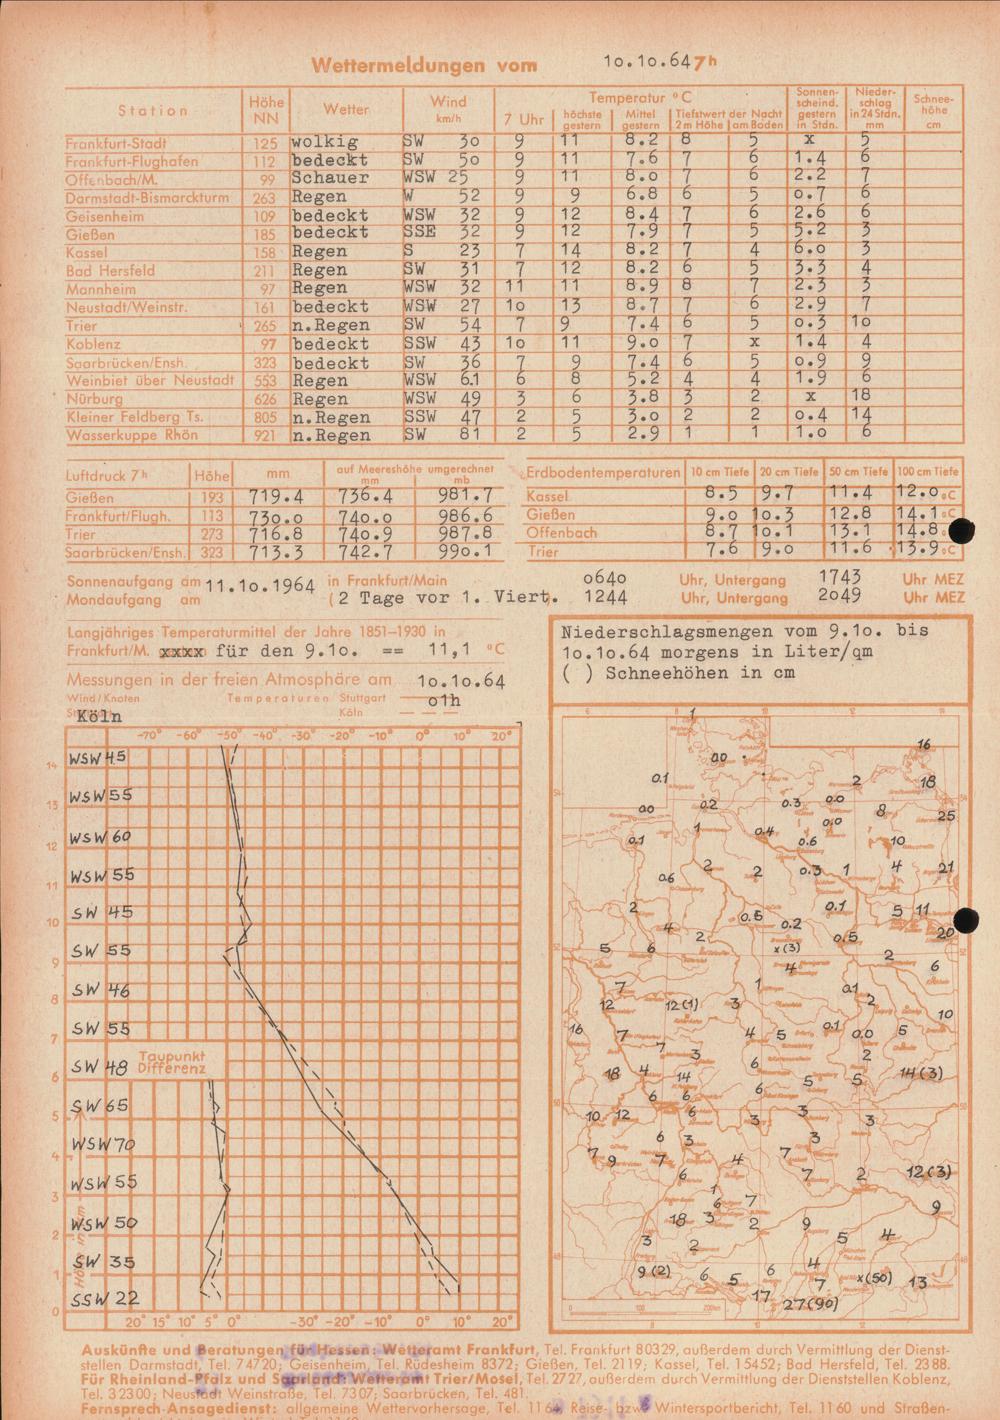 Wettermeldungen vom 1o.1o.64 7h
Station Höhe NN Wetter Wind km/h Temperatur °C Sonnen-scheind. gestern in Stdn. Nieder-schlag in 24 Stdn. mm Schnee-höhe cm
7 Uhr höchste gestern Mittel gestern Tiefstwert der Nacht 2m Höhe am Boden
Frankfurt-Stadt 125 wolkig SW 3o 9 11 8.2 8 5 x 5
Frankfurt-Flughafen 112 bedeckt SW 5o 9 11 7.6 7 6 1.4 6
Offenbach/M. 99 Schauer WSW 25 9 11 8.o 7 6 2.2 7
Darmstadt-Bismarckturm 263 Regen W 52 9 9 6.8 6 5 o.7 6
Geisenheim 109 bedeckt WSW 32 9 12 8.4 7 6 2.6 6
Gießen 185 bedeckt SSE 32 9 12 7.9 7 5 5.2 3
Kassel 158 Regen S 23 7 14 8.2 7 4 6.o 3
Bad Hersfeld 211 Regen SW 31 7 12 8.2 6 5 3.3 4
Mannheim 97 Regen WSW 32 11 11 8.9 8 7 2.3 3
Neustadt/Weinstr. 161 bedeckt WSW 27 1o 13 8.7 7 6 2.9 7
Trier 265 n.Regen SW 54 7 9 7.4 6 5 o.3 1o
Koblenz 97 bedeckt SSW 43 1o 11 9.o 7 x 1.4 4
Saarbrücken/Ensh. 323 bedeckt SW 36 7 9 7.4 6 5 o.9 9
Weinbiet über Neustadt 553 Regen WSW 61 6 8 5.2 4 4 1.9 6
Nürburg 626 Regen WSW 49 3 6 3.8 3 2 x 18
Kleiner Feldberg Ts. 805 n.Regen SSW 47 2 5 3.o 2 2 o.4 14
Wasserkuppe Rhön 921 n.Regen SW 81 2 5 2.9 1 1 1.o 6
Luftdruck 7h Höhe mm auf Meereshöhe umgerechnet mm mb
Gießen 193 719.4 736.4 981.7
Frankfurt/Flugh. 113 73o.o 74o.o 986.6
Trier 273 716.8 74o.9 987.8
Saarbrücken/Ensh. 323 713.3 742.7 99o.1
Erdbodentemperaturen 10 cm Tiefe 20 cm Tiefe 50 cm Tiefe 100 cm Tiefe
Kassel 8.5 9.7 11.4 12.o °C
Gießen 9.o 1o.3 12.8 14.1 °C
Offenbach 8.7 1o.1 13.1 14.8
Trier 7.6 9.o 11.6 13.9 °C
Sonnenaufgang am 11.1o.1964 in Frankfurt/Main o64o Uhr, Untergang 1743 Uhr MEZ
Mondaufgang am (2 Tage vor 1. Viert. 1244 Uhr, Untergang 2o49 Uhr MEZ
Langjähriges Temperaturmittel der Jahre 1851–1930 in
Frankfurt/M. xxxx für den 9.1o. == 11,1 °C
Messungen in der freien Atmosphäre am 1o.1o.64
Wind/Knoten Temperaturen Stuttgart o1h
Köln Köln
Niederschlagsmengen vom 9.1o. bis
1o.1o.64 morgens in Liter/qm
( ) Schneehöhen in cm
-70° -60° -50° -40° -30° -20° -10° 0° 10° 20°
14 WSW 45
13 WSW 55
12 WSW 60
11 WSW 55
10 SW 45
9 SW 55
8 SW 46
7 SW 55
6 SW 48 Taupunkt Differenz
5 SW 65
4 WSW 70
3 WSW 55
2 WSW 50
1 SW 35
0 SSW 22
20° 15° 10° 5° 0° -30° -20° -10° 0° 10° 20°
1
16
0.0
0.1 2 18
0.0 0.2 0.3 0.0 8 25
0.1 1 0.4 0.6 0.0 10
0.6 2 2 0.3 1 4 21
2 0.5 0.2 0.1 5 11
4 2 0.5 20
5 6 x(3) 2 6
4
7 1 0.1
12 12(1) 3 2 10
16 7 4 5 0.1 0.0 5
7 3 6 2
18 4 14 5 5 14(3)
6 6 6
10 12 6 3 3 3
6 3 3
7 9 7 4
6 7 2 12(3)
1 6 7 9
18 3 2 9 5 4
3 2
9(2) 6 5 6 4 7 x(50) 13
17 27(90)
Auskünfte und Beratungen für Hessen: Wetteramt Frankfurt, Tel. Frankfurt 80329, außerdem durch Vermittlung der Dienst-
stellen Darmstadt, Tel. 74720; Geisenheim, Tel. Rüdesheim 8372; Gießen, Tel. 2119; Kassel, Tel. 15452; Bad Hersfeld, Tel. 2388.
Für Rheinland-Pfalz und Saarland: Wetteramt Trier/Mosel, Tel. 2727, außerdem durch Vermittlung der Dienststellen Koblenz,
Tel. 32300; Neustadt Weinstraße, Tel. 7307; Saarbrücken, Tel. 481.
Fernsprech-Ansagedienst: allgemeine Wettervorhersage, Tel. 1164 Reise- bzw. Wintersportbericht, Tel. 1160 und Straßen-